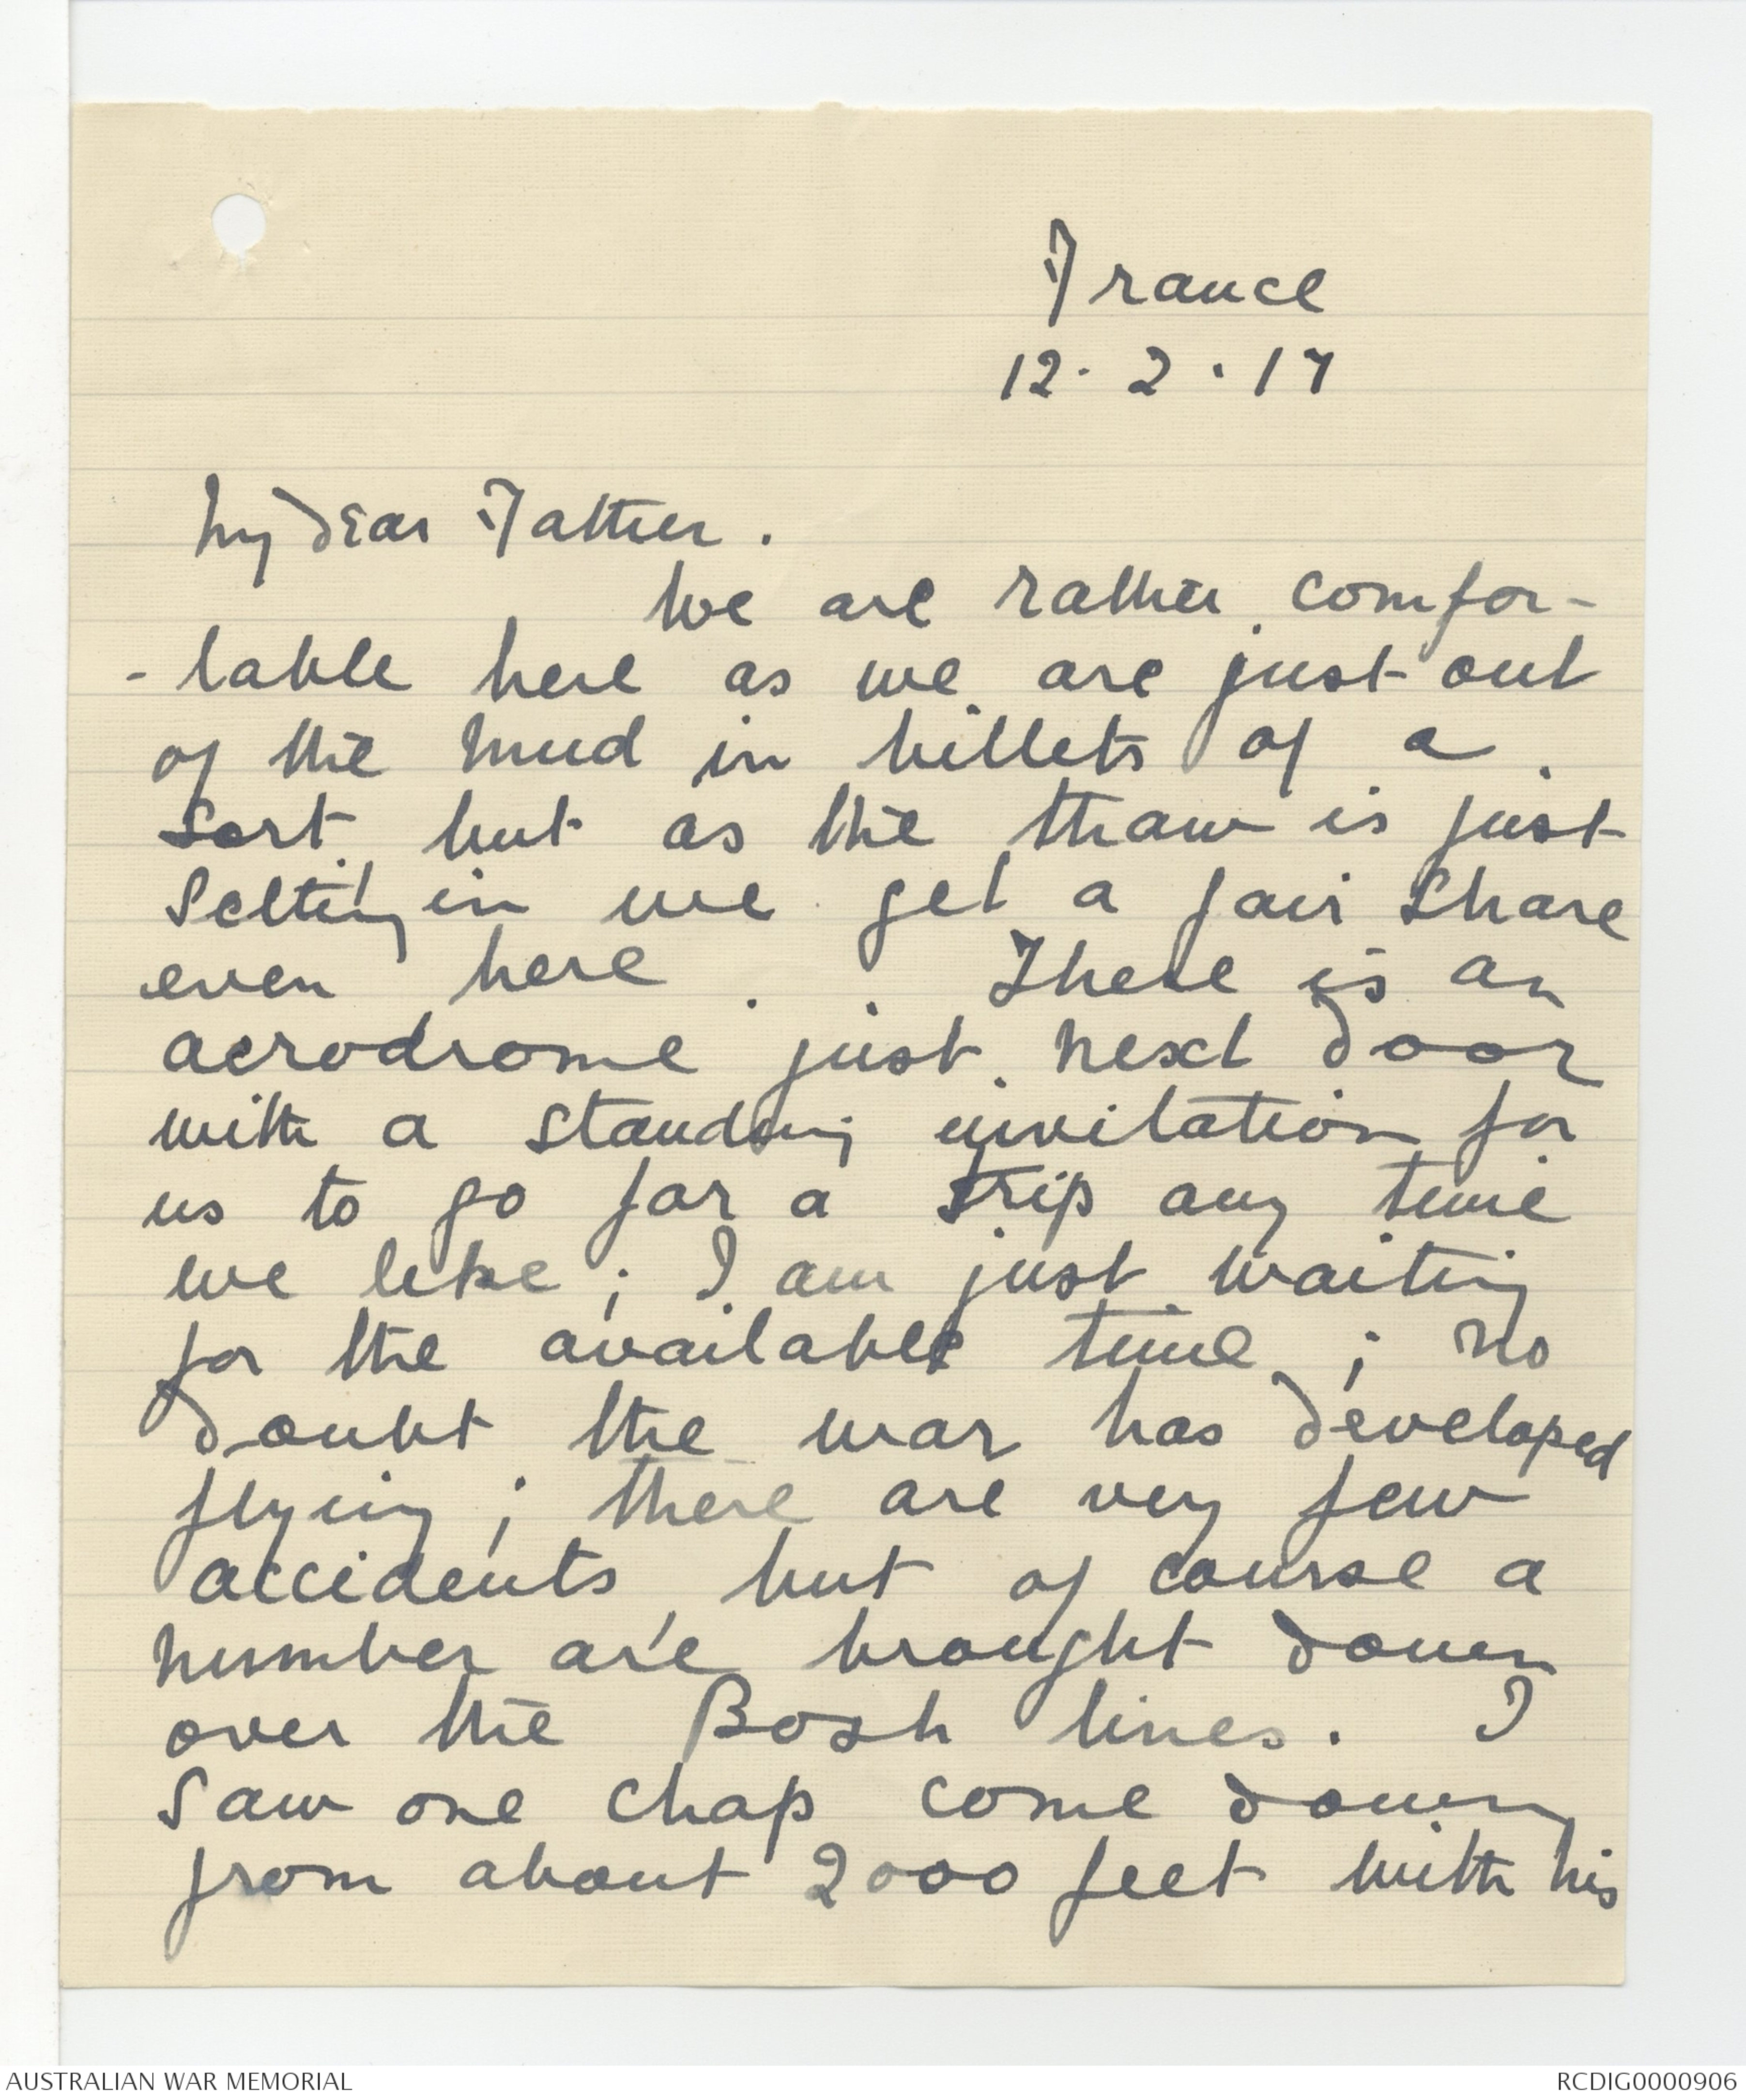 France
12.2.17
My dear Father.
We are rather comfor-
-table here as we are just out
of the mud in billets of a
sort but as the thaw is just
setting in we get a fair share
even here. There is an
aerodrome just next door
with a standing invitation for
us to go for a trip any time
we like; I am just waiting
for the available time; no
doubt the war has developed
flying; there are very few
accidents but of course a
number are brought down
over the Bosh lines. I
saw one chap come down
from about 2000 feet with his
AUSTRALIAN WAR MEMORIAL
RCDIG0000906